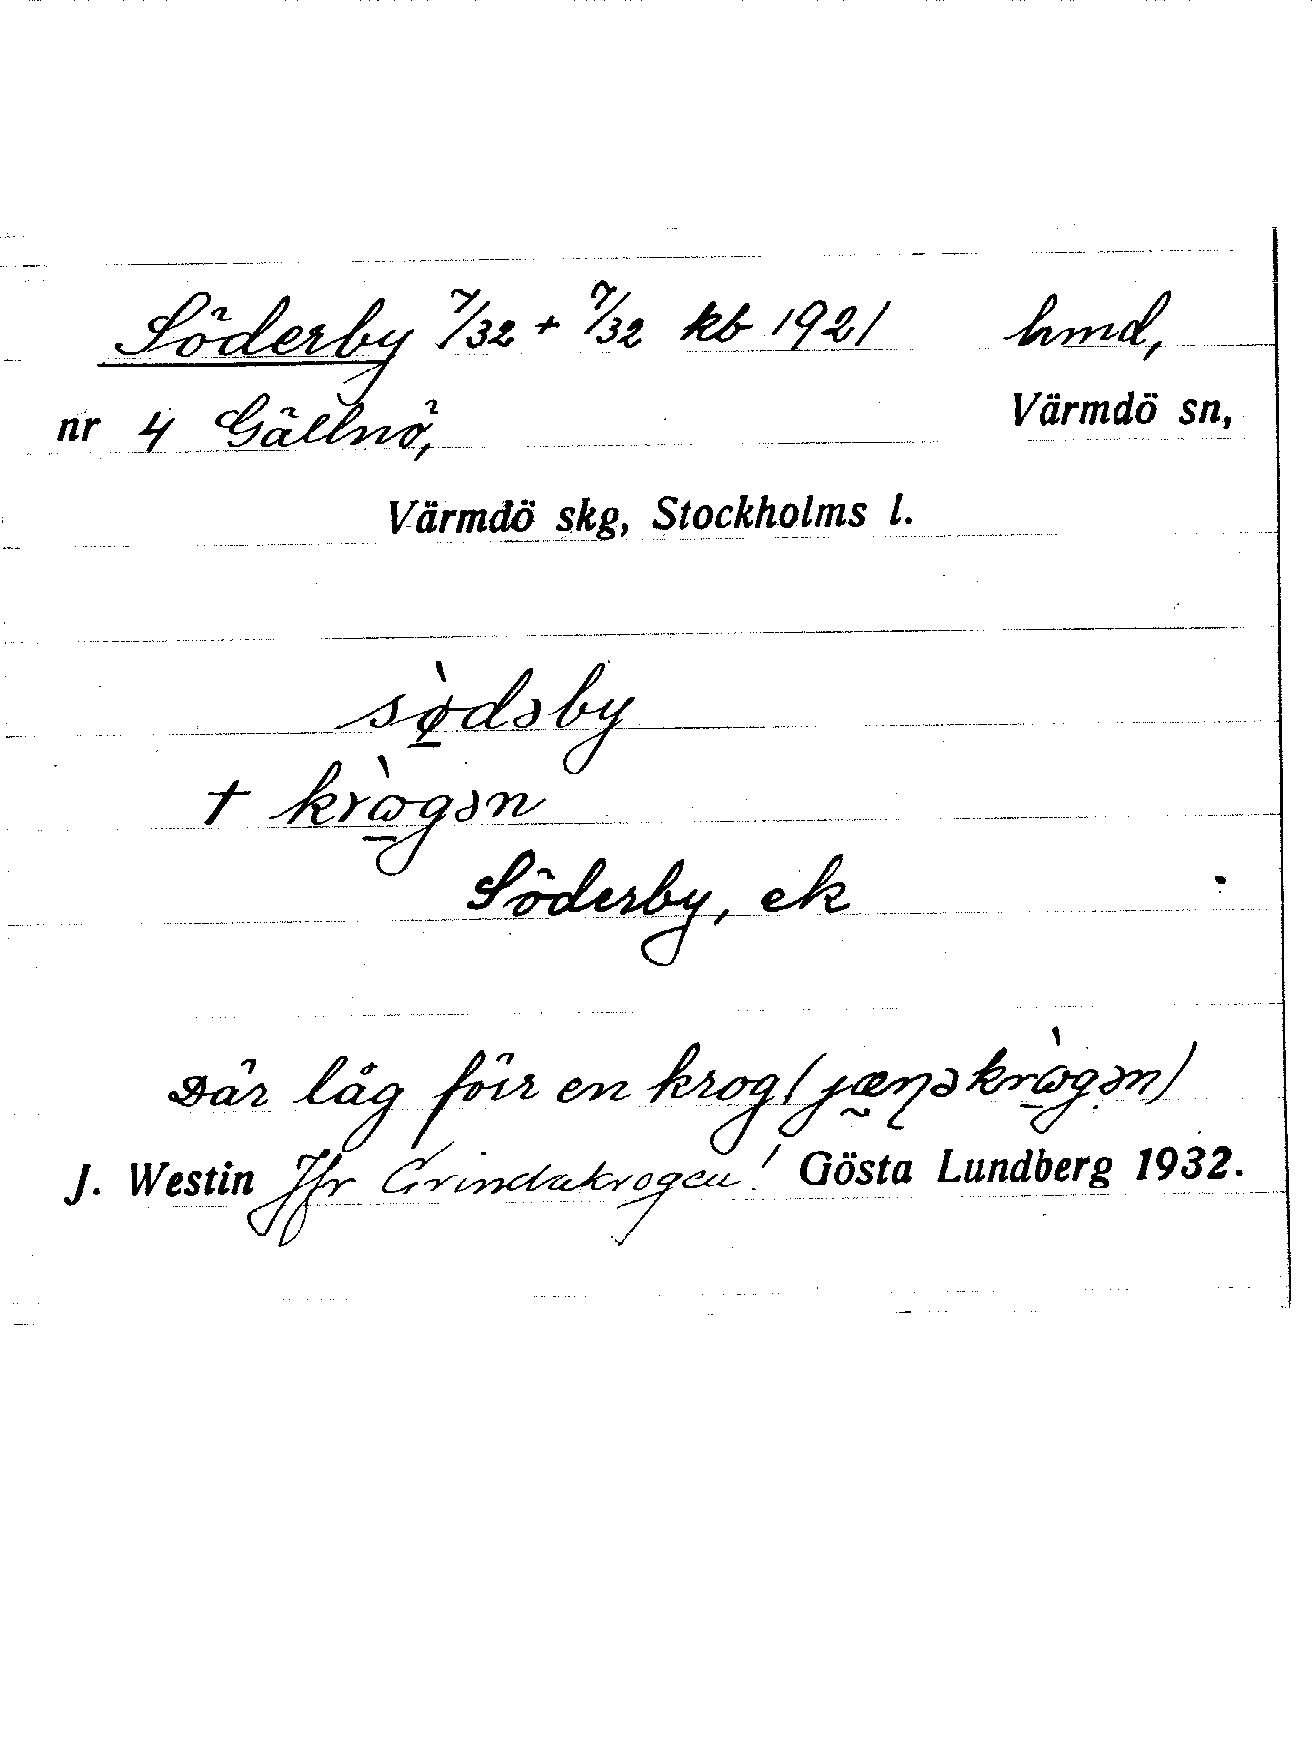 Söderby 7/32 + 7/32 kb 1921 hmd,
nr 4 Gällnö, Värmdö sn,
Värmdö skg, Stockholms l.
sø̀dəby
† krɷ̀gən
Söderby, ek
Där låg förr en krog (jæɳəkrɷ̀gən)
J. Westin Jfr Grindakrogen! Gösta Lundberg 1932.